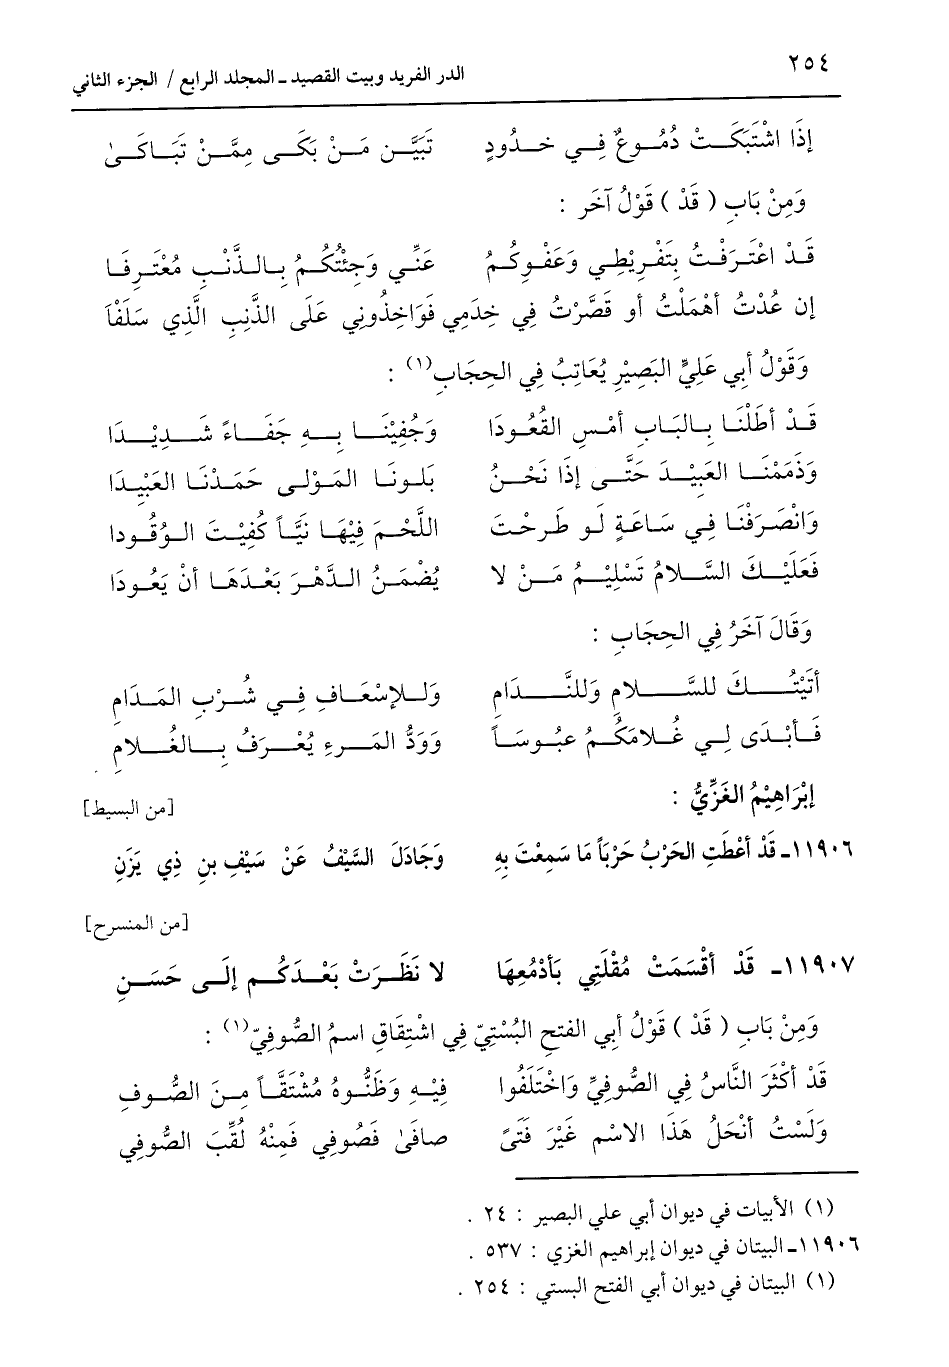 ٢٥٤ الدر الفريد وبيت القصيد ـ المجلد الرابع / الجزء الثاني
إِذَا اشْتَبَكَتْ دُمُوعٌ فِي خُدُودٍ تَبَيَّنَ مَنْ بَكَى مِمَّنْ تَبَاكَىٰ
وَمِنْ بَابِ ( قَدْ ) قَوْلُ آخَر :
قَدْ اعْتَرَفْتُ بِتَفْرِيْطِي وَعَفْوِكُمُ عَنِّي وَجِئْتُكُمُ بِالذَّنْبِ مُعْتَرِفَا
إن عُدْتُ أَهْمَلْتُ أو قَصَّرْتُ فِي خِدَمِي فَوَاخِذُونِي عَلَى الذَّنِبِ الَّذِي سَلَفَاَ
وَقَوْلُ أَبِي عَلِيٍّ البَصِيْرِ يُعَاتِبُ فِي الحِجَابِ(١) :
قَدْ أَطَلْنَا بِالبَابِ أَمْسِ القُعُودَا وَجُفِيْنَا بِهِ جَفَاءً شَدِيْدَا
وَذَمَمْنَا العَبِيْدَ حَتَّى إِذَا نَحْنُ بَلونَا المَوْلى حَمَدْنَا العَبْيِدَا
وَانْصَرَفْنَا فِي سَاعَةٍ لَو طَرحْتَ اللَّحْمَ فِيْهَا نَيَّاً كُفِيْتَ الوُقُودا
فَعَلَيْكَ السَّلامُ تَسْلِيْمُ مَنْ لا يُضْمَنُ الدَّهْرَ بَعْدَهَا أَنْ يَعُودَا
وَقَالَ آخَرُ فِي الحِجَابِ :
أَتَيْتُكَ للسَّلامِ وَللنَّدَامِ وَلِلإسْعَافِ فِي شُرْبِ المَدَامِ
فَأَبْدَى لِي غُلامَكُمُ عبُوسَاً وَوَدُّ المَرءِ يُعْرَفُ بِالغُلامِ
إبْرَاهِيْمُ الغَزِّيُّ : [من البسيط]
١١٩٠٦ـ قَدْ أَعْطَتِ الحَرْبُ حَرْبَاً مَا سَمِعْتَ بِهِ وَجَادَلَ السَّيْفُ عَنْ سَيْفِ بنِ ذِي يَزَنِ
[من المنسرح]
١١٩٠٧ـ قَدْ أَقْسَمَتْ مُقْلَتِي بَأَدْمُعِهَا لا نَظَرَتْ بَعْدَكُم إِلَى حَسَنِ
وَمِنْ بَابِ ( قَدْ ) قَوْلُ أَبِي الفتحِ البُسْتِيّ فِي اشْتِقَاقِ اسمُ الصُّوفِيّ(١) :
قَدْ أَكْثَرَ النَّاسُ فِي الصُّوفِيِّ وَاخْتَلَفُوا فِيْهِ وَظَنُّوهُ مُشْتَقَّاً مِنَ الصُّوفِ
وَلَسْتُ أَنْحَلُ هَذَا الاسْم غَيْرَ فَتَىً صافَىٰ فَصُوفِي فَمِنْهُ لُقِّبَ الصُّوفِي
(١) الأبيات في ديوان أبي علي البصير : ٢٤ .
١١٩٠٦ـ البيتان في ديوان إبراهيم الغزي : ٥٣٧ .
(١) البيتان في ديوان أبي الفتح البستي : ٢٥٤ .